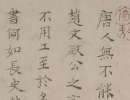 唐人無不能
趙文敏公之
不用工至於
書何如長史